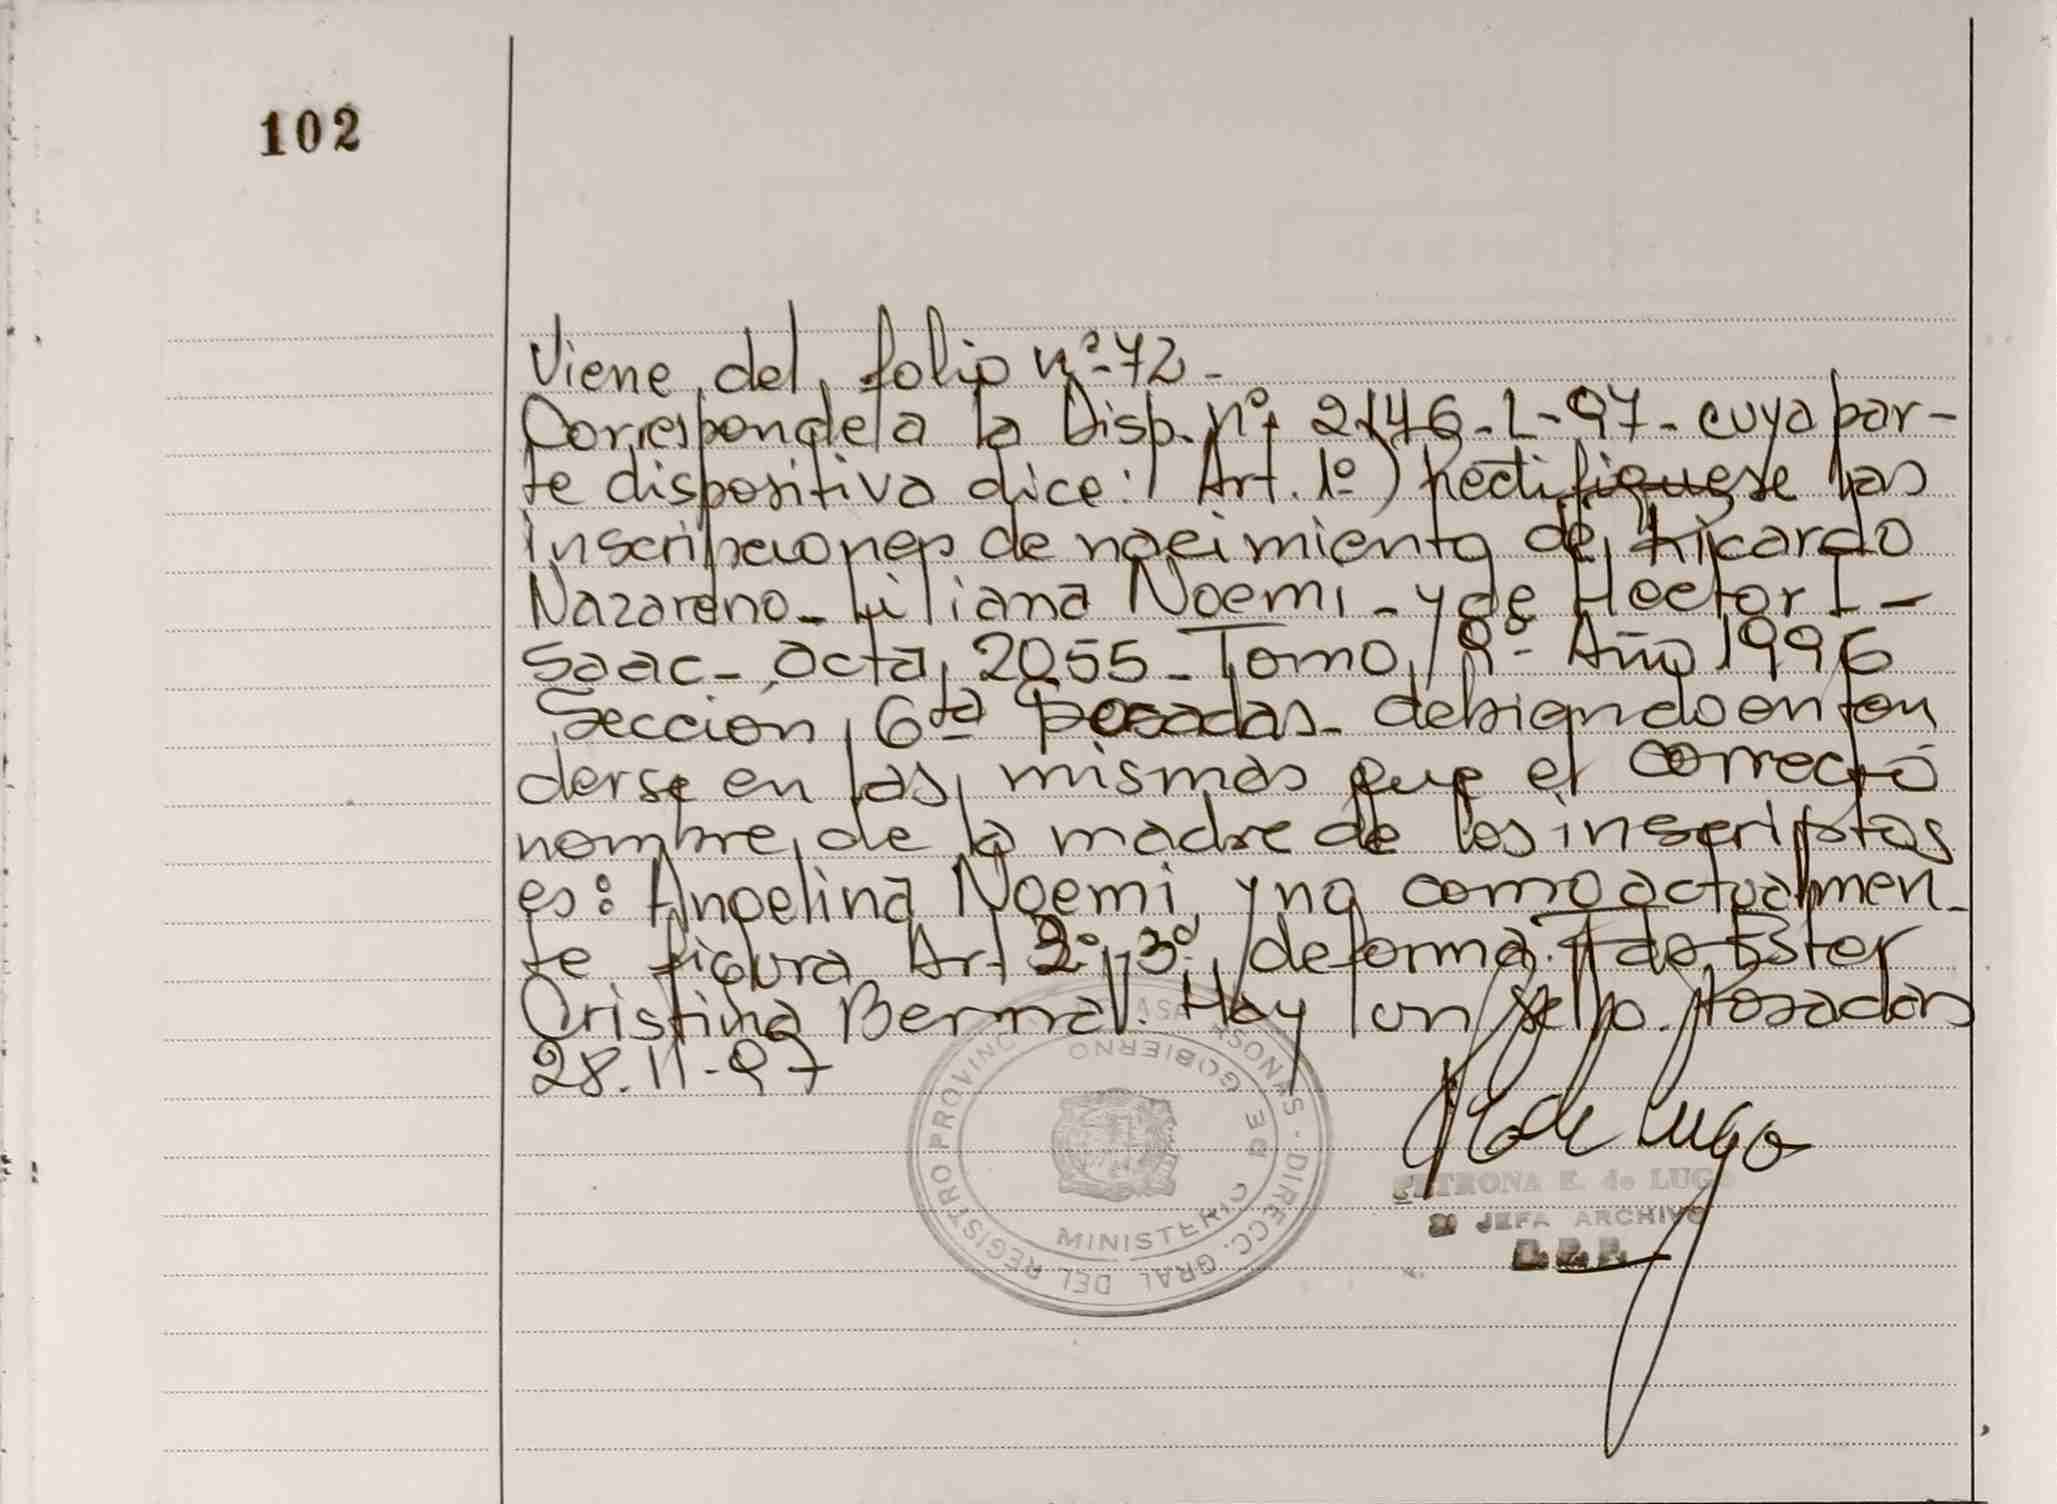 102
Viene del folio nº 72-
Corresponde a la Disp. nº 2146-L-97- cuya par-
te dispositiva dice: Art. 1º) Rectifiquese las
inscripciones de nacimiento de Ricardo
Nazareno- Liliana Noemi - y de Hector I-
saac- acta 2055- Tomo 9º- Año 1996
Sección 6ta Posadas- debiendo enten
derse en las mismas que el correcto
nombre de la madre de los inscriptos
es: Angelina Noemi y no como actualmen-
te figura Art 2º y 3º de forma. Fdo Ester
Cristina Bernal. Hay un sello. Posadas
28.11-97
PETRONA E. de LUGO
JEFA ARCHIVO
R. P. P.
DIRECC. GRAL DEL REGISTRO PROVINC PERSONAS
MINISTERIO DE GOBIERNO